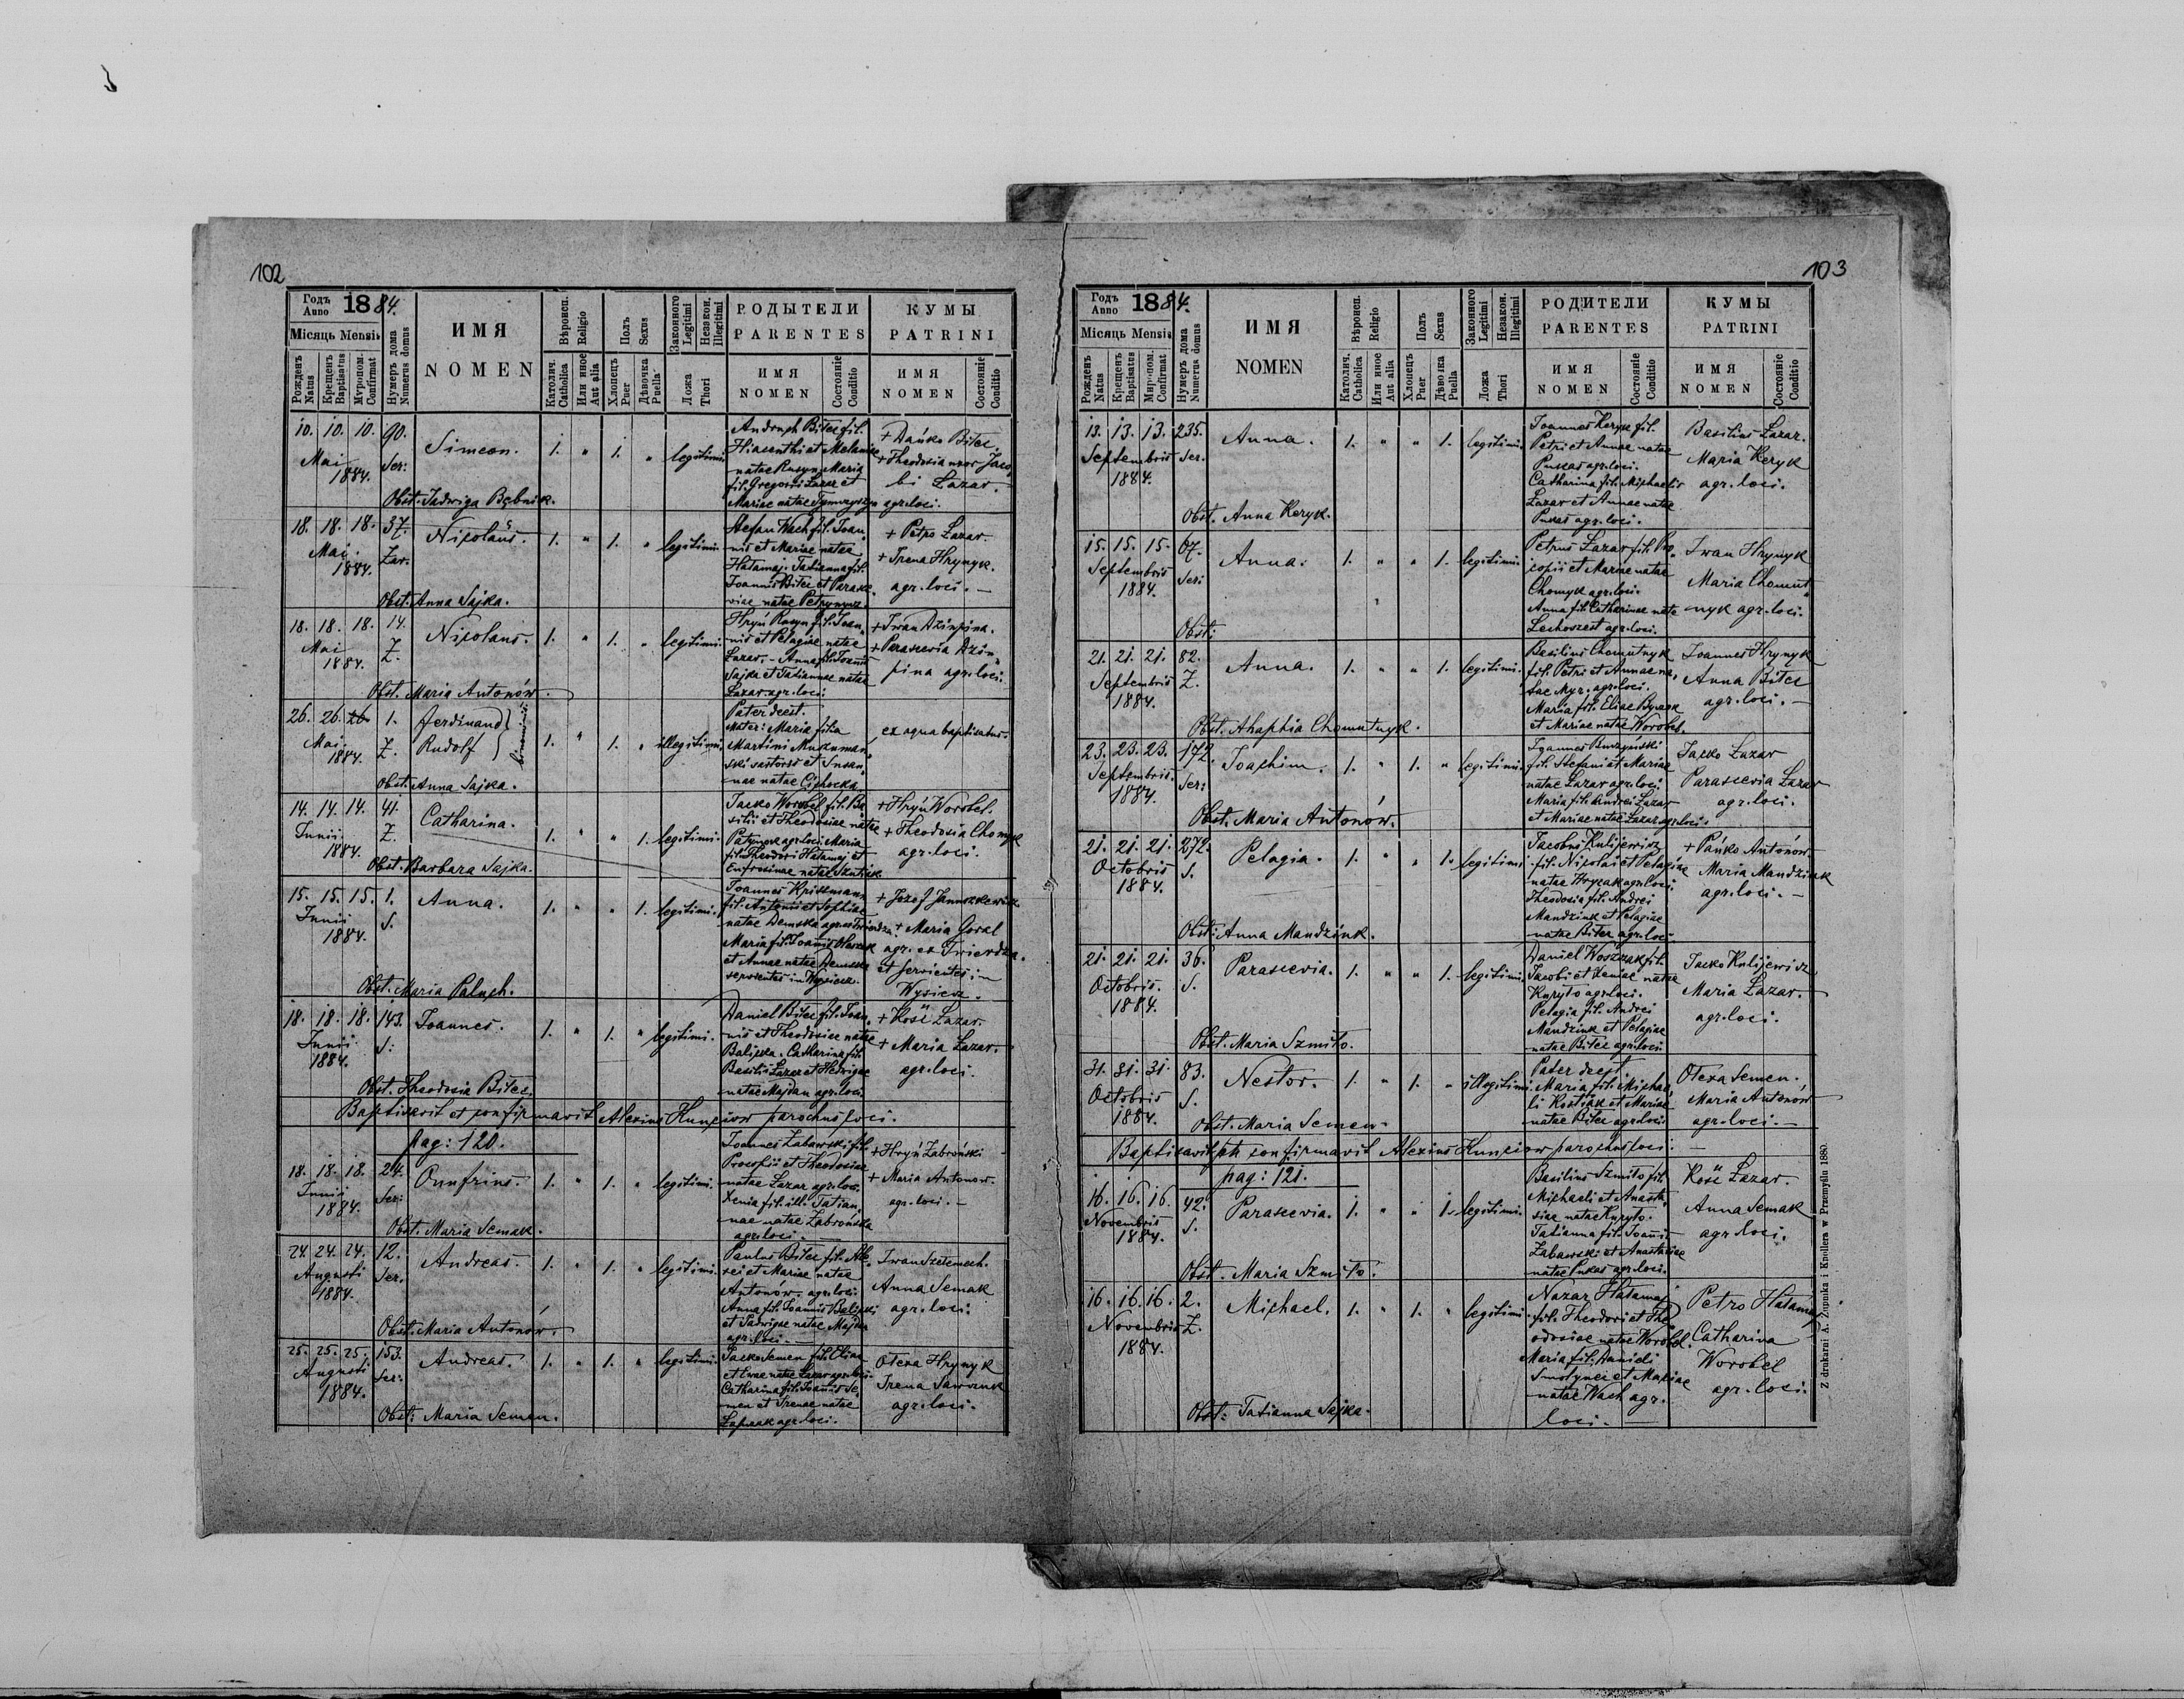 102
Годъ
Anno 1884.
Місяць Mensis
Рожденъ
Natus
Крещенъ
Baptisatus
Мѵропом.
Confirmat
Нумеръ дома
Numerus domus
ИМЯ
NOMEN
Вѣроисп.
Religio
Католич.
Catholica
Или иное
Aut alia
Полъ
Sexus
Хлопецъ
Puer
Дѣвочка
Puella
Законного
Legitimi
Незакон.
Illegitimi
Ложа
Thori
РОДЫТЕЛИ
PARENTES
ИМЯ
NOMEN
Состояніе
Conditio
КУМЫ
PATRINI
ИМЯ
NOMEN
Состояніе
Conditio
10. 10. 10. 90.
Mai Ser:
1884.
Simeon. 1. " 1. " legitimi.
fil.
Hiacenthi et Melaniae
natae Rusyn. Maria
fil. Gregorii Lazar et
Mariae natae
+ Dańko Bilec
+ Theodosia uxor Jaco
bi Łazar.
agr. loci.
Obst. Jadwiga Bębnik.
18. 18. 18. 37.
Mai. Zar.
1884.
Nikolaus. 1. " 1. " legitimi.
Stefan Wach fil. Joan,
nis et Mariae natae
Hatamaj. Tatianna fil.
Joannis Bilec et Parasc.
wiae natae
+ Petro Łazar.
+ Irena Hrynyk.
agr. loci. —
Obst. Anna Sajka.
18. 18. 18. 14.
Mai Z.
1884.
Nikolaus. 1. " 1. " legitimi.
Hryń Rusyn fil. Joan,
nis et Pelagiae natae
Łazar. - Anna fil. Joannis
Sajka et Tatiannae natae
Łazar agr. loci.
+ Iwan
+ Parascevia
agr. loci.
Obst. Maria Antonów.
26. 26. 26 1.
Mai. Z.
1884.
Ferdinand
Rudolf
1. " 1. " illegitimi.
Pater deest.
Mater: Maria filia
Martini
sartoris et Susan,
nae natae
ex aqua baptisatus.
Obst. Anna Sajka.
14. 14. 14. 41.
Junii Z.
1884.
Catharina. 1. " " 1. legitimi.
Jacko Worobel fil. Ba
silii et Theodosiae natae
agr. loci. Maria
fil. Theodori Hatamaj et
Eufrosinae natae
+ Hryń Worobel.
+ Theodosia Chomyk
agr. loci.
Obst. Barbara Sajka.
15. 15. 15. 1.
Junii S.
1884.
Anna. 1. " " 1. legitimi.
Joannes Kriszmann
fil. Antonii et Sophiae
natae Demska
Maria fil. Joannis
et Annae natae Demska
servientes in Wysiecz.
+ Józef Januszkewicz
+ Maria Goral
agr. ex Twierdza.
et servientes in
Wysiecz.
Obst. Maria Paluch.
18. 18. 18. 143.
Junii S.
1884.
Joannes. 1. " 1. " legitimi.
Daniel Bilec fil. Joan,
nis et Theodosiae natae
Balicka. Catharina fil.
Basilii Łazar et Hedwigae
natae Majdan agr. loci.
+ Kosť Łazar.
+ Maria Łazar.
agr. loci.
Obst. Theodosia Bilec.
Baptisavit et confirmavit Alexius Kunciow parochus loci.
pag: 120.
18. 18. 18. 24.
Junii Ser:
1884.
Onufrius. 1. " 1. " legitimi.
Joannes Zabawski fil.
Procopii et Theodosiae
natae Łazar agr. loci.
Xenia fil. ill. Tatian,
nae natae Zabrońska
agr. loci.
+ Hryń Zabroński
+ Maria Antonow.
agr. loci. —
Obst. Maria Semak.
24. 24. 24. 12.
Augusti Ser.
1884.
Andreas. 1. " 1. " legitimi.
Paulus Bilec fil. Ale
xei et Mariae natae
Antonów. agr. loci.
Anna fil. Joannis Balicki
et Jadwigae natae Majka
agr. loci.
Iwan Szeremech.
Anna Semak
agr. loci.
Obst. Maria Antonów.
25. 25. 25. 153.
Augusti Ser:
1884.
Andreas. 1. " 1. " legitimi.
Jacko Semen fil. Eliae
et Evae natae Łazar agr. loci.
Catharina fil. Joannis Se,
men et Irenae natae
agr. loci.
Olexa Hrynyk
Irena Sawczuk
agr. loci.
Obst: Maria Semen.
103
Годъ
Anno 1884.
Місяць Mensis
Рожденъ
Natus
Крещенъ
Baptisatus
Миропом.
Confirmat
Нумеръ дома
Numerus domus
ИМЯ
NOMEN
Вѣроисп.
Religio
Католич.
Catholica
Или иное
Aut alia
Полъ
Sexus
Хлопецъ
Puer
Дѣвочка
Puella
Законного
Legitimi
Незакон.
Illegitimi
Ложа
Thori
РОДИТЕЛИ
PARENTES
ИМЯ
NOMEN
Состояніе
Conditio
КУМЫ
PATRINI
ИМЯ
NOMEN
Состояніе
Conditio
13. 13. 13. 235.
Septembris Ser.
1884.
Anna. 1. " " 1. legitimi.
Joannes Keryk fil.
Petri et Annae natae
Pukas agr. loci.
Catharina fil. Michaelis
Lazar et Annae natae
Pukas agr. loci.
Basilius Lazar.
Maria Keryk
agr. loci.
Obst. Anna Keryk.
15. 15. 15. 67.
Septembris Ser:
1884.
Anna. 1. " " 1. legitimi.
Petrus Łazar fil. Pro,
copii et Mariae natae
Chomyk agr. loci.
Anna fil. Catharinae nata
agr. loci.
Iwan Hrynyk
Maria Chomut,
nyk agr. loci.
Obst:
21. 21. 21. 82.
Septembris Z.
1884.
Anna. 1. " " 1. legitimi.
Basilius Chomutnyk
fil. Petri et Annae na,
tae Myr. agr. loci.
Maria fil. Eliae
et Mariae natae Worobel.
Joannes Hrynyk
Anna Bilec
agr. loci. —
Obst. Ahaphia Chomutnyk.
23. 23. 23. 172.
Septembris. Ser:
1884.
Joachim. 1. " 1. " legitimi.
Joannes Burzyński
fil. Stefani et Mariae
natae Lazar agr. loci.
Maria fil. Andrei Lazar
et Mariae natae Łazar agr. loci.
Jacko Łazar
Parascevia Łazar
agr. loci.
Obst. Maria Antonów.
21. 21. 21. 272.
Octobris S.
1884.
Pelagia. 1. " " 1. legitimi.
Jacobus Kulijewicz
fil. Nicolai et Pelagiae
natae Hrycak agr. loci.
Theodosia fil. Andrei
Mandziuk et Pelagiae
natae Bilec agr. loci.
+ Pańko Antonów.
Maria Mandziuk
agr. loci. —
Obst: Anna Mandziuk.
21. 21. 21. 36.
Octobris. S.
1884.
Parascevia. 1. " " 1. legitimi.
Daniel Woszczak fil.
Jacobi et Xeniae natae
Kuryło agr. loci.
Pelagia fil. Andrei
Mandziuk et Pelagiae
natae Bilec agr. loci.
Jacko Kulijewicz
Maria Łazar.
agr. loci.
Obst. Maria Szmiło.
31. 31. 31. 83.
Octobris S.
1884.
Nestor. 1. " 1. " illegitimi.
Pater deest.
Maria fil. Michae,
li Kostiak et Mariae
natae Bilec agr. loci.
Olexa Semen.
Maria Antonów
agr. loci. —
Obst. Maria Semen.
Baptisavit et confirmavit Alexius Kunciow parochus loci.
pag: 121.
16. 16. 16. 42.
Novembris S.
1884.
Parascevia. 1. " " 1. legitimi.
Basilius Szmiło fil.
Michaeli et Anasta,
siae natae Kuryło.
Tatianna fil. Joannis
Zabawski et Anastasiae
natae Pukas agr. loci.
Kosť Łazar.
Anna Semak
agr. loci.
Obst. Maria Szmiło.
16. 16. 16. 2.
Novembris Z.
1884.
Michael. 1. " 1. " legitimi.
Nazar Hatamaj
fil. Theodori et The
odosiae natae Worobel.
Maria fil. Danieli
Smolynec et Mariae
natae Wach agr.
loci. —
Petro Hatamaj
Catharina
Worobel
agr. loci.
Obst: Tatianna Sajka.
Z drukarni A. Żupnika i Knollera w Przemyślu 1880.